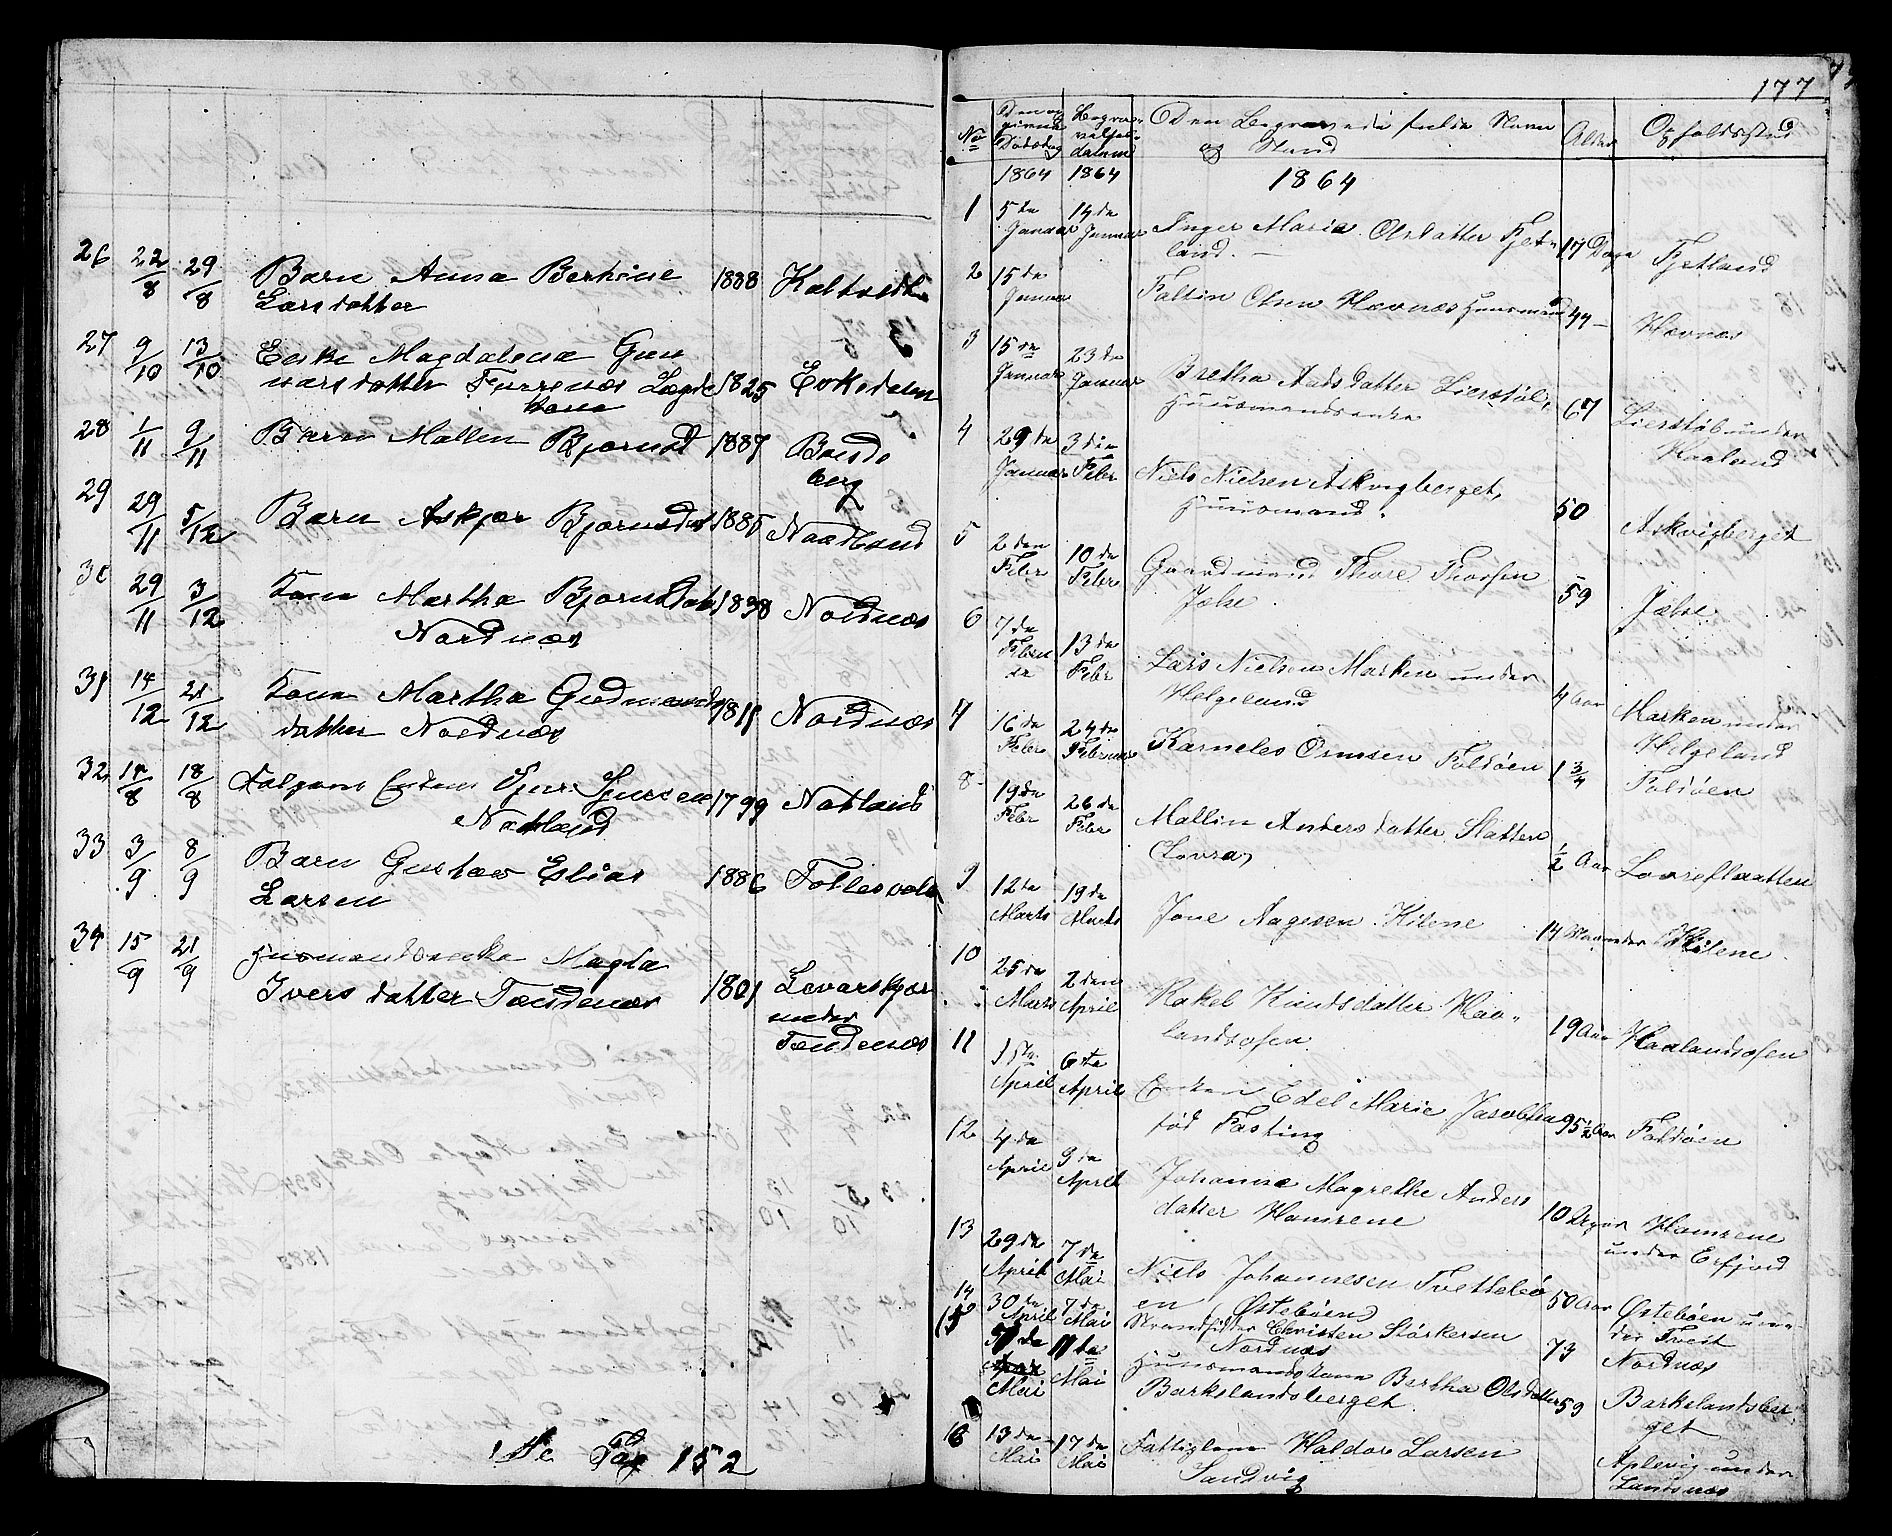 26 22/8 29/8 Barn Anna Berthine 1888
Larsdatter
27 9/10 13/10 Enke Magdalena Gun
narsdatter Furrenæs Lægds 1825 Eikedalen
kone
28 1/11 9/11 Barn Mallen Bjørnsd 1887 Bords
berg
29 29/11 5/12 Barn Askjær Bjørnsdat 1885 Naadland
30 29/11 3/12 Kone Martha Bjørnsdat 1838 Nordnæs
Nordnæs
31 14/12 21/12 Kone Martha Gudmunds 1819 Nordnæs
datter Nordnæs
32 14/8 18/8 Sjur Sjursen 1799 Natland
Natland
33 3/9 8/9 Barn Gustav Elias 1886 Tøtlesvold
Larsen
34 15/9 21/9 Huusmandsenke Magla
Iversdatter Tændenæs 1801 Levarskjær
under
Tændenæs
Se Pag 152
177
No Den an givende Dødsdag Begra-velses-datum Den Begravedes fulde Navn Alder Opholdssted
og Stand
1864 1864 1864
1 5te Januar 14de Januar Inger Maria Olsdatter Fjet-
land. 17 Dage Fjetland
2 15de Januar Faltin Olsen Hævnæs Huusmand 44 Hævnæs
3 15de Januar 23de Januar Bretha Aadsdatter Lierstøl,
Huusmandsenke 67 Lierstøl under
Haaland
4 29de Januar 3die Febr Niels Nielsen Askvigberget,
Huusmand. 50 Askvigberget
5 2den Febr 10de Febr Gaardmand Thore Thorsen
Jelse 59 Jelse
6 7de Februar 13de Febr Lars Nielsen Marken under
Helgeland 4 Aar Marken under
Helgeland
7 16de Febr 24de Februar Karneles Ormsen Foldøen 1 3/4 Foldøen
8 19de Febr 26de Febr Mallin Andersdatter Slatten
Lovra 1/2 Aar Lovreslaatten
9 12te Marts 19de Marts Jone Aagesen Hilene 14 Maaneder Hilene
10 25de Marts 2den April Rakel Knutsdatter Haa-
landsosen 19 Aar Haalandsosen
11 1ste April 6te April Enken Edel Marie Jacobsen
fød Fasting 95 1/2 Aar Foldøen
12 4de April 9de April Johanna Magrethe Anders
datter Hamrene 10 Dager Hamrene
under Erfjord
13 29de April 7de Mai Niels Johannesen Tvettebø
en Østebøen 50 Aar Østebøen un-
der Tveit
14 30te April 7de Mai Strandsidder Christen Størkersen
Nordnæs 73 Nordnæs
15 5te Mai 11te Mai Huusmandskone Bertha Olsdatter
Barkelandsberget 59 Barkelandsber
get
16 13de Mai 17de Mai Fattiglem Haldor Larsen
Sandvig Aplevig under
Landsnæs